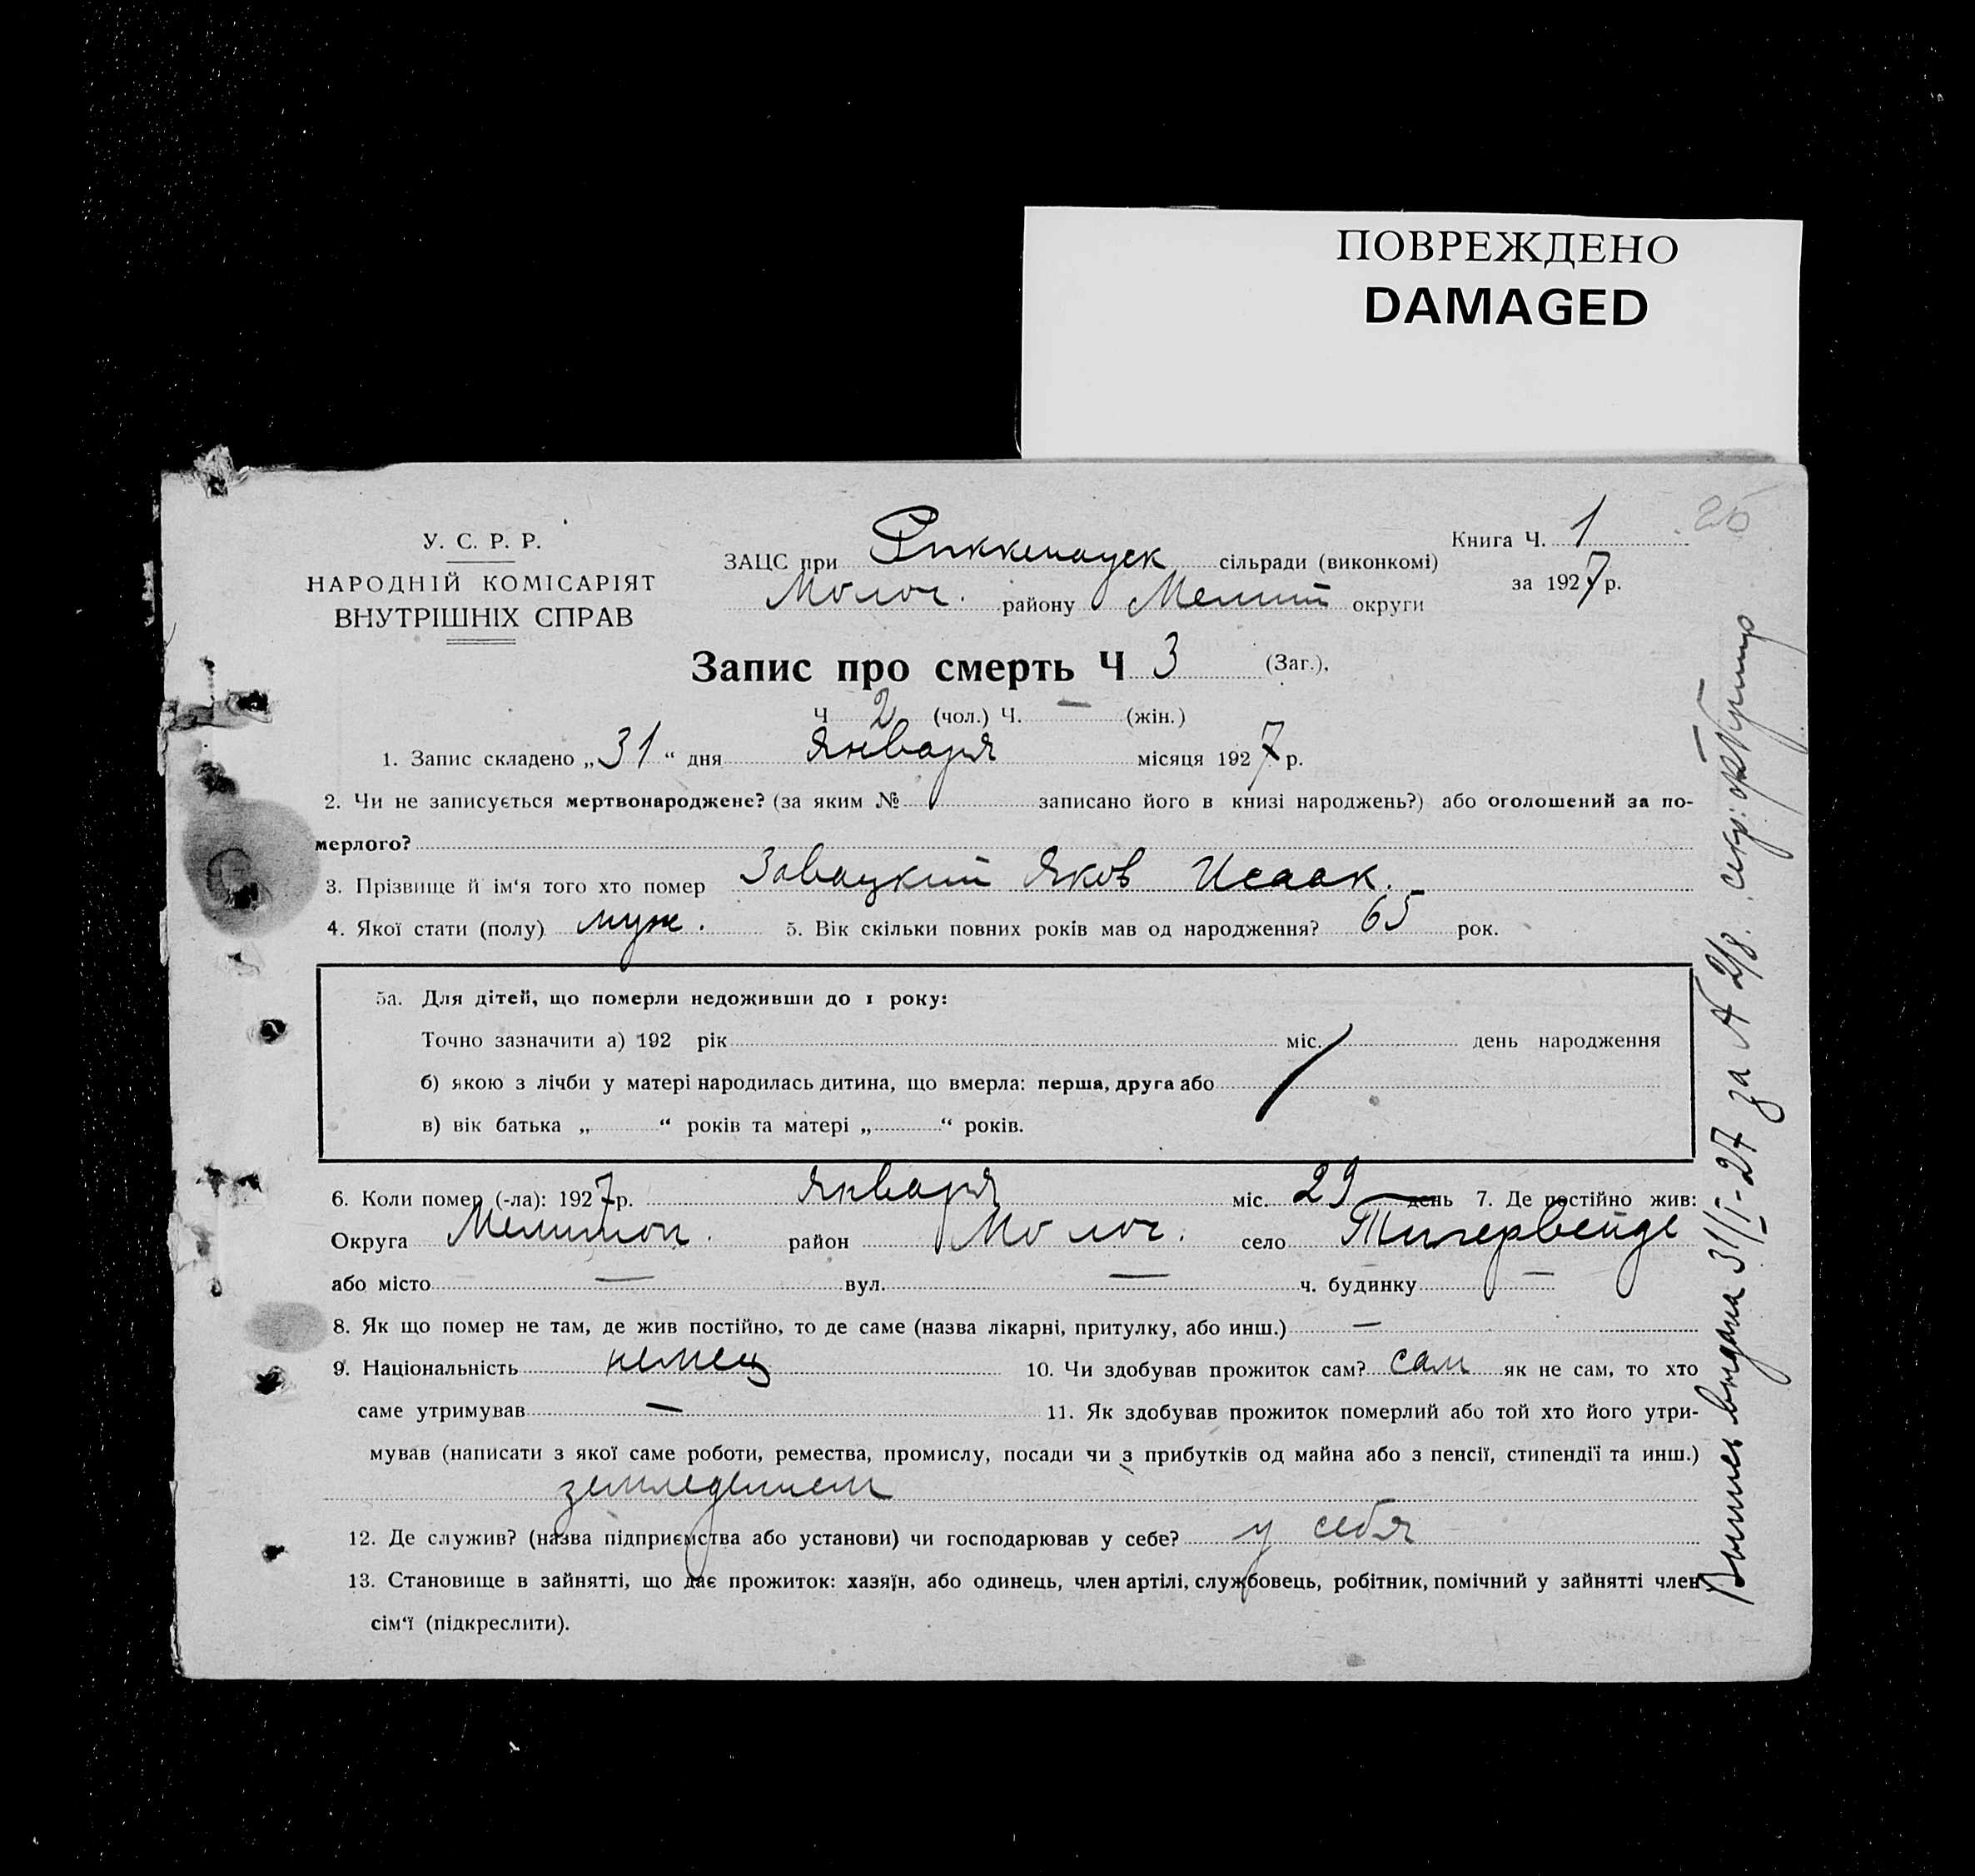 ПОВРЕЖДЕНО
DAMAGED
25
У. С. Р. Р.
НАРОДНІЙ КОМІСАРІЯТ
ВНУТРІШНІХ СПРАВ
ЗАЦС при Риккенауск сільради (виконкомі)
Молоч. району Мелит округи
Книга Ч. 1
за 1927 р.
Запис про смерть Ч 3 (Заг.),
Ч 2 (чол.) Ч. — (жін.)
1. Запис складено „31“ дня января місяця 1927 р.
2. Чи не записується мертвонароджене? (за яким № записано його в книзі народжень?) або оголошений за по-
мерлого?
3. Прізвище й ім‘я того хто помер Завацкий Яков Исаак.
4. Якої стати (полу) муж. 5. Вік скільки повних років мав од народження? 65 рок.
5а. Для дітей, що померли недоживши до 1 року:
Точно зазначити а) 192 рік міс. день народження
б) якою з лічби у матері народилась дитина, що вмерла: перша, друга або
в) вік батька „ “ років та матері „ “ років.
6. Коли помер (-ла): 1927 р. января міс. 29 день 7. Де постійно жив:
Округа Мелитоп. район Молоч. село Тигервейде
або місто — вул. — ч. будинку —
8. Як що помер не там, де жив постійно, то де саме (назва лікарні, притулку, або инш.) —
9. Національність немец 10. Чи здобував прожиток сам? сам як не сам, то хто
саме утримував — 11. Як здобував прожиток померлий або той хто його утри-
мував (написати з якої саме роботи, ремества, промислу, посади чи з прибутків од майна або з пенсії, стипендії та инш.)
земледелием
12. Де служив? (назва підприємства або установи) чи господарював у себе? у себя
13. Становище в зайнятті, що дає прожиток: хазяїн, або одинець, член артілі, службовець, робітник, помічний у зайнятті член
сім‘ї (підкреслити).
Выпись выдана 31/I-27 за № 218. секр.